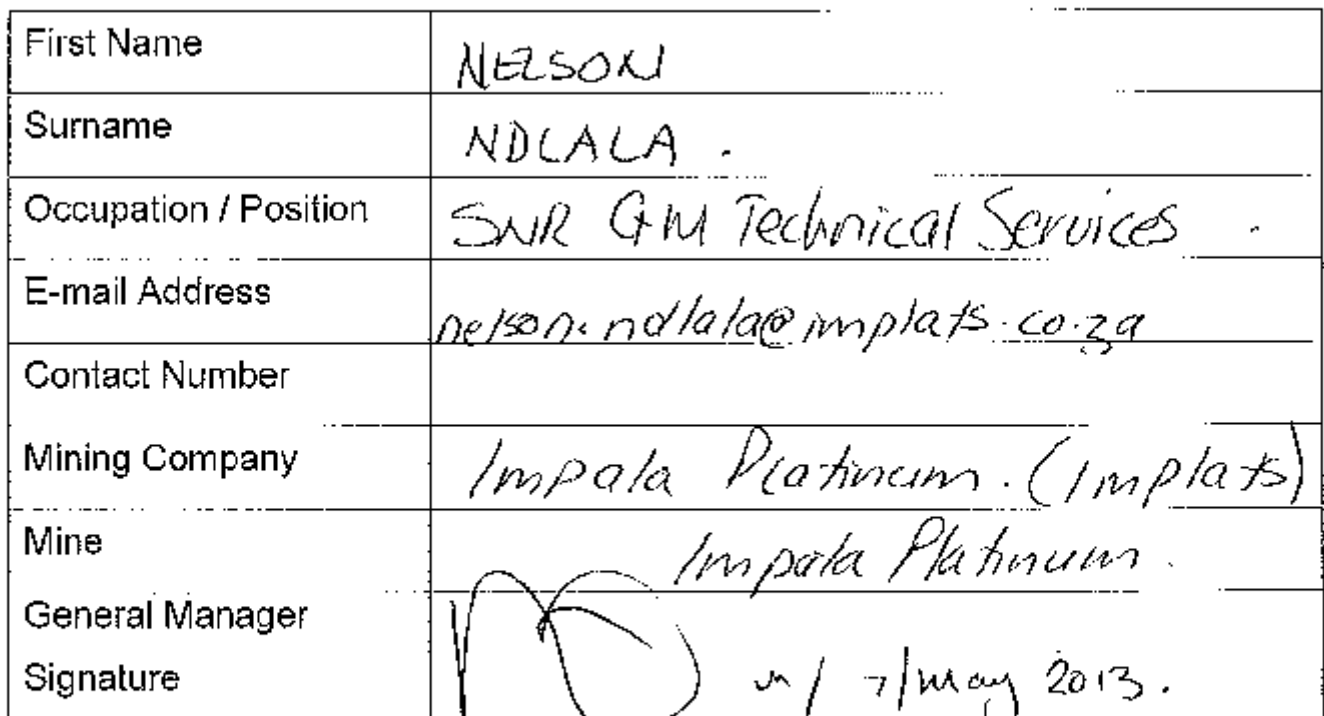 First Name NELSON
Surname NDLALA .
Occupation / Position SNR GM Technical Services .
E-mail Address nelson.ndlala@implats.co.za
Contact Number
Mining Company Impala Platinum. (Implats)
Mine Impala Platinum.
General Manager
Signature 7/May 2013.